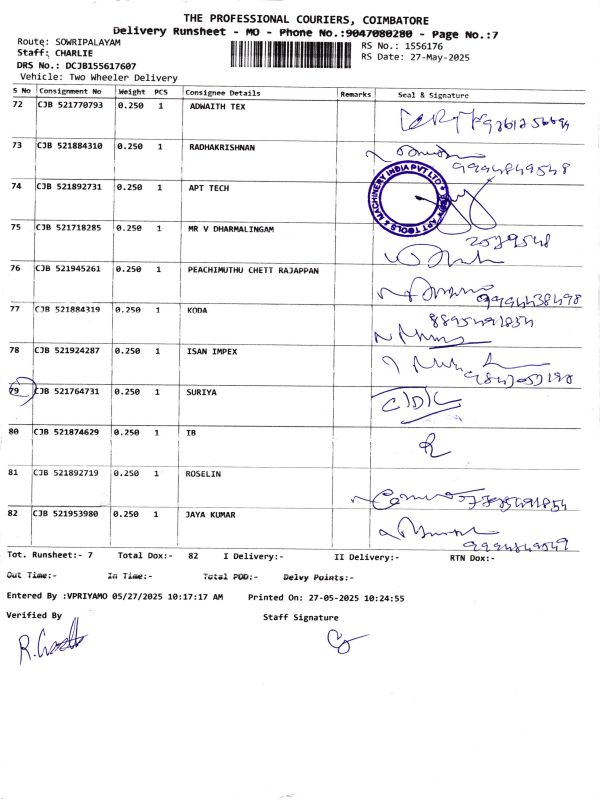 THE PROFESSIONAL COURIERS, COIMBATORE
Delivery Runsheet - MO - Phone No.:9047080280 - Page No.:7
Route: SOWRIPALAYAM
RS No.: 1556176
Staff: CHARLIE
RS Date: 27-May-2025
DRS No.: DCJB155617607
Vehicle: Two Wheeler Delivery
S No Consignment No Weight PCS Consignee Details Remarks Seal & Signature
72 CJB 521770793 0.250 1 ADWAITH TEX
73 CJB 521884310 0.250 1 RADHAKRISHNAN
9994849548
74 CJB 521892731 0.250 1 APT TECH
APT TOOLS & MACHINERY INDIA PVT LTD
75 CJB 521718285 0.250 1 MR V DHARMALINGAM
76 CJB 521945261 0.250 1 PEACHIMUTHU CHETT RAJAPPAN
9994438498
77 CJB 521884319 0.250 1 KODA
8895491854
78 CJB 521924287 0.250 1 ISAN IMPEX
79 CJB 521764731 0.250 1 SURIYA
80 CJB 521874629 0.250 1 IB
81 CJB 521892719 0.250 1 ROSELIN
82 CJB 521953980 0.250 1 JAYA KUMAR
Tot. Runsheet:- 7 Total Dox:- 82 I Delivery:- II Delivery:- RTN Dox:-
Out Time:- In Time:- Total POD:- Delvy Points:-
Entered By :VPRIYAMO 05/27/2025 10:17:17 AM Printed On: 27-05-2025 10:24:55
Verified By Staff Signature